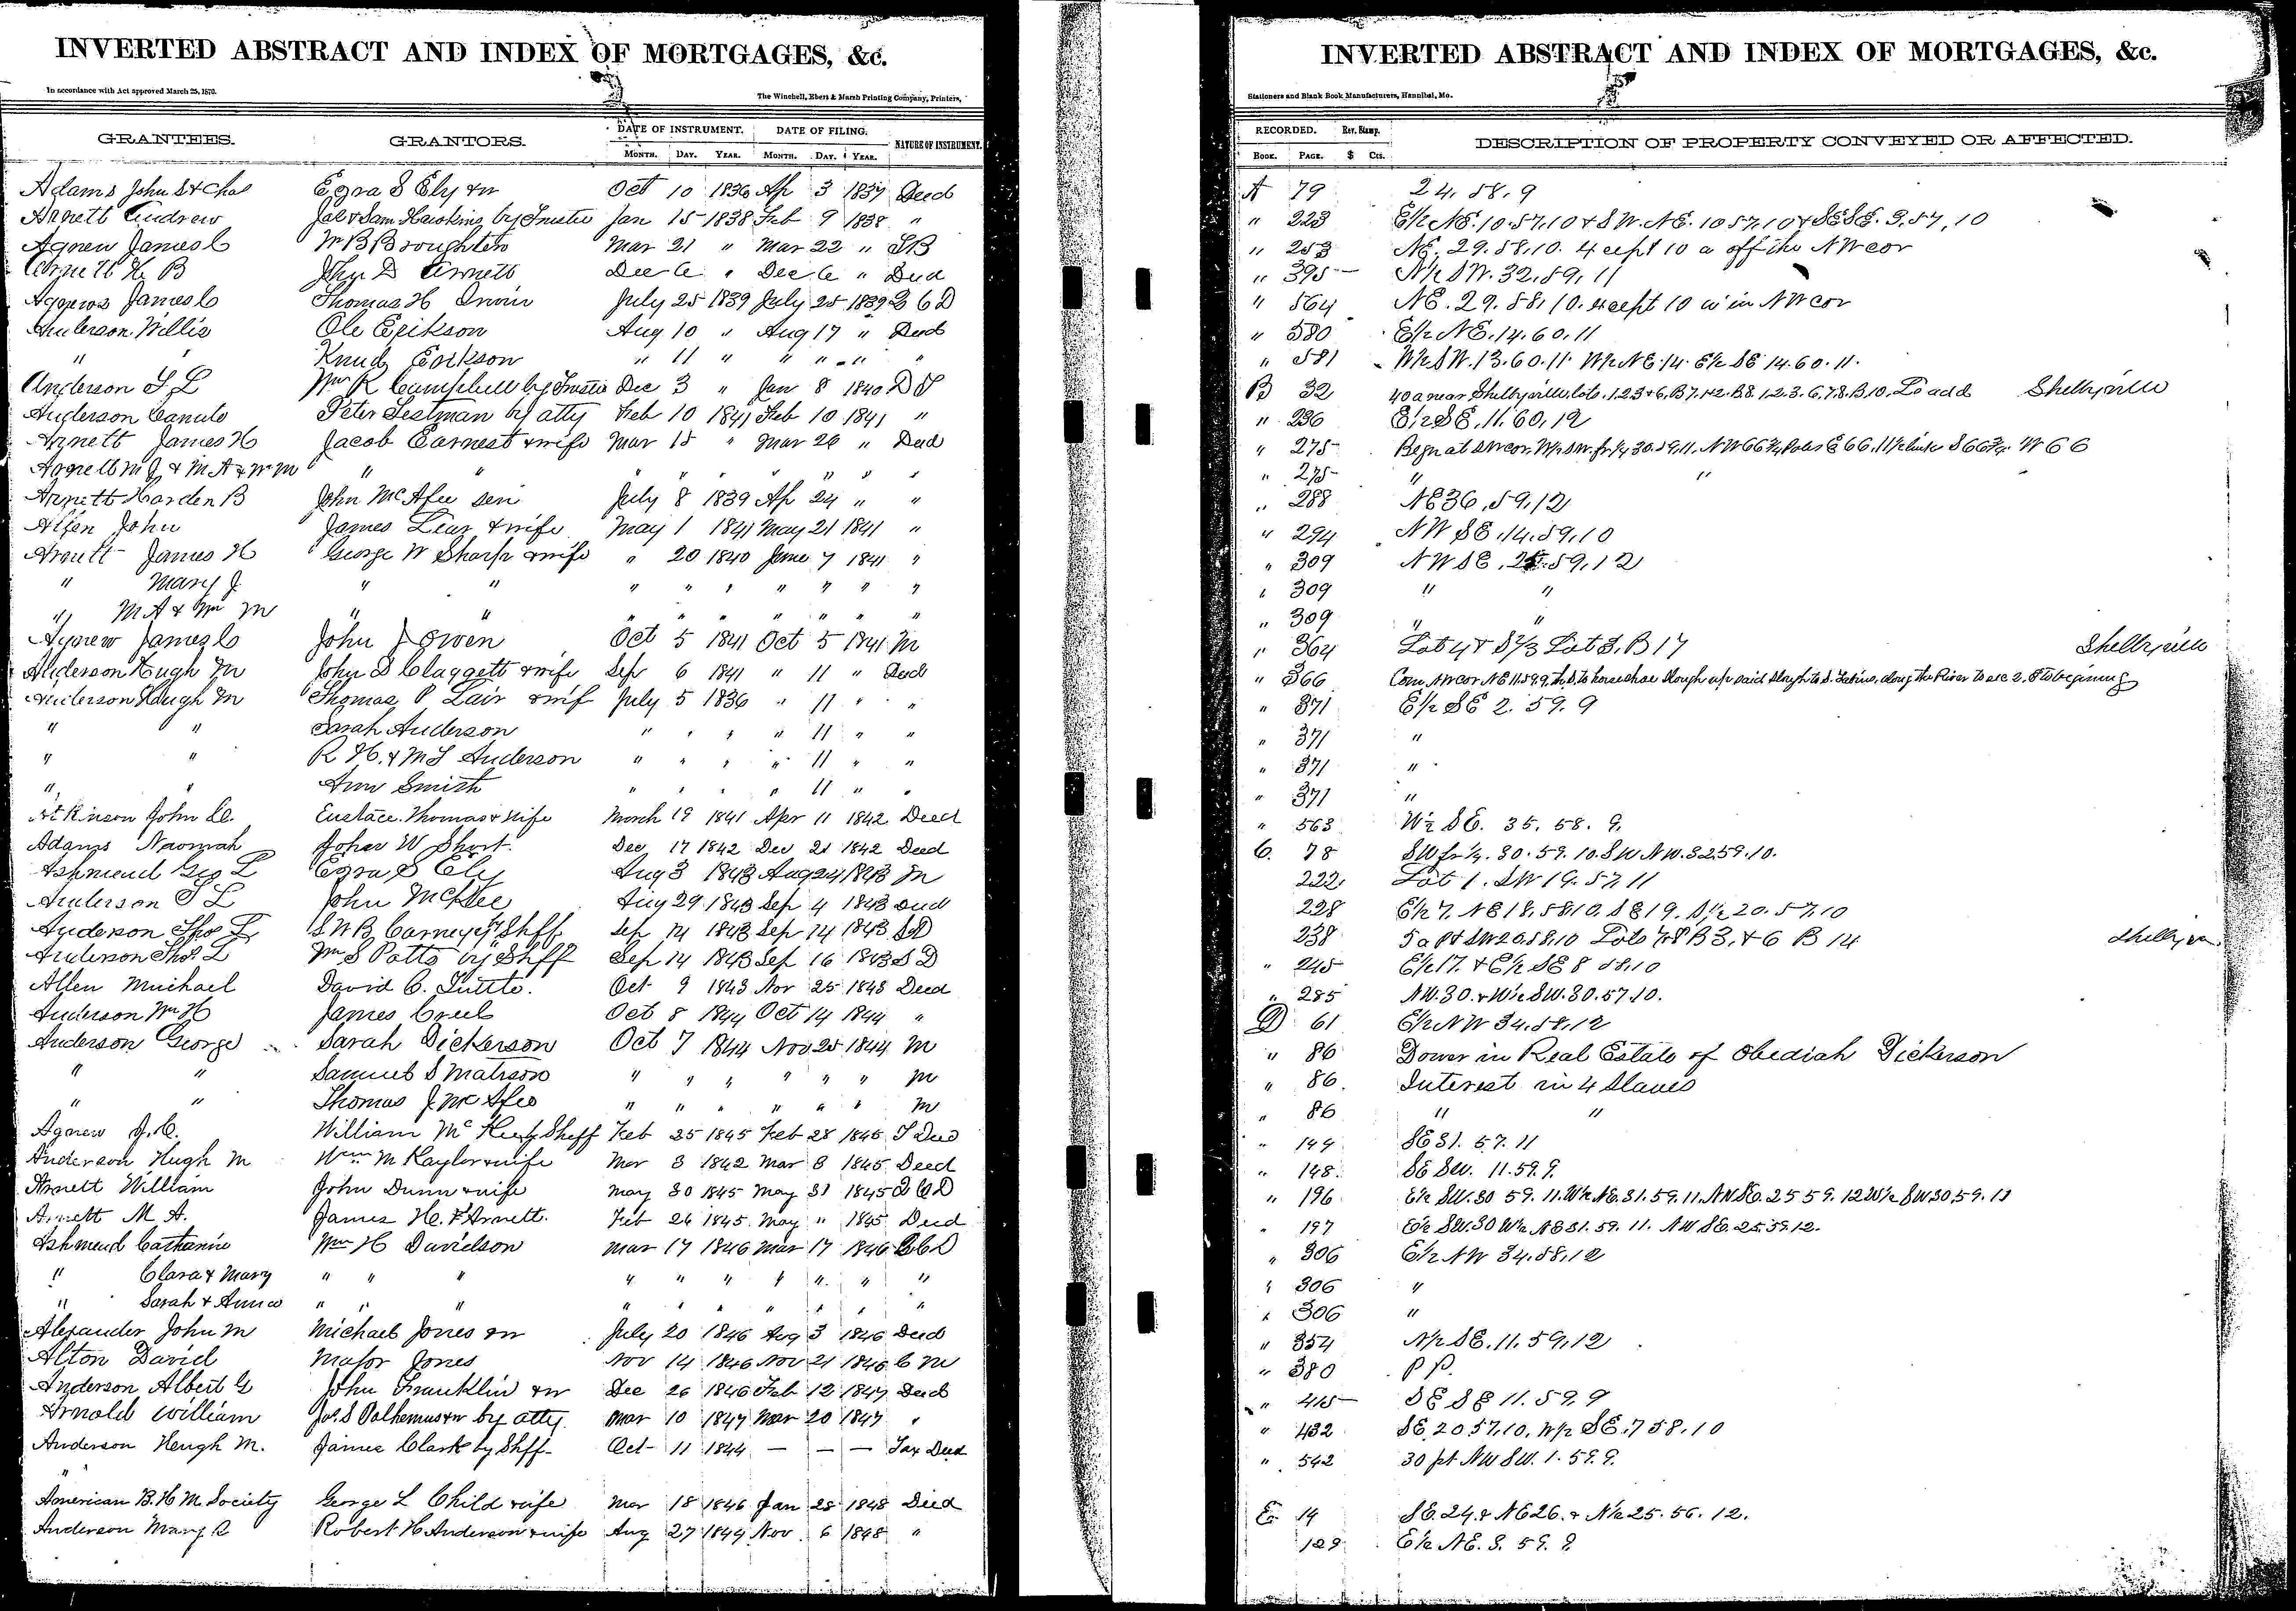 INVERTED ABSTRACT AND INDEX OF MORTGAGES, &c.
In accordance with Act approved March 25, 1870.
The Winchell, Ebert & Marsh Printing Company, Printers,
GRANTEES. GRANTORS. DATE OF INSTRUMENT. DATE OF FILING. NATURE OF INSTRUMENT.
MONTH. DAY. YEAR. MONTH. DAY. YEAR.
Adams John S & Chas Ezra S Ely & w Oct 10 1836 Ap 3 1837 Deed
Arnett Andrew Jas & Sam Hawkins by Trustee Jan 15 1838 Feb 9 1838 "
Agnew James C W B Broughton Mar 21 " Mar 22 "
Arnett H B Jhn D Arnett Dec 6 " Dec 6 " Deed
Agnew James C Thomas H Irwin July 25 1839 July 25 1839 2 C D
Anderson Willis Ole Erikson Aug 10 " Aug 17 " Deed
" " Knud Erikson " 11 " " " " "
Anderson T L Wm R Campbell by Trustee Dec 3 " Jan 8 1840 D T
Anderson Canute Peter Testman by atty Feb 10 1841 Feb 10 1841 "
Arnett James H Jacob Earnest & wife Mar 15 " Mar 26 " Deed
Arnett M J & M A & W M " " " " " " " " "
Arnett Harden B John McAfee sen July 8 1839 Ap 24 " "
Allen John James Lear & wife May 1 1841 May 21 1841 "
Arnett James H George W Sharp & wife " 20 1840 June 7 1841 "
" Mary J. " " " " " " " " "
" M A & Wm M " " " " " " " " "
Agnew James C John J Owen Oct 5 1841 Oct 5 1841 M
Anderson Hugh M John D Claggett & wife Sep 6 1841 " 11 " Deed
Anderson Hugh M Thomas P Lair & wif July 5 1836 " 11 " "
" " Sarah Anderson " " " " 11 " "
" " R H. & M S Anderson " " " " 11 " "
" " Ann Smith " " " " 11 " "
Atkinson John C. Eustace Thomas & wife March 19 1841 Apr 11 1842 Deed
Adams Naomah John W Short. Dec 17 1842 Dec 21 1842 Deed
Ashmend Geo L Ezra S Ely Aug 3 1843 Aug 24 1843 M
Anderson T L John McAfee Aug 29 1843 Sep 4 1843 Deed
Anderson Thos L S W B Carnegy by Shff Sep 14 1843 Sep 14 1843 S D
Anderson Thos L Wm S Potts by Shff Sep 14 1843 Sep 16 1843 S D
Allen Michael David C. Tuttle. Oct 9 1843 Nov 25 1843 Deed
Anderson Wm H James Creel Oct 8 1844 Oct 14 1844 "
Anderson George Sarah Dickerson Oct 7 1844 Nov 25 1844 M
" " Samuel S Matson " " " " " " M
" " Thomas J. McAfee " " " " " " M
Agnew J. C. William Mc Shff Feb 25 1845 Feb 28 1845 T Deed
Anderson Hugh M Wm M Kaylor & wife Mar 3 1842 Mar 8 1845 Deed
Arnett William John Dunn & wife May 30 1845 May 31 1845 2 C D
Arnett M A. James H. F Arnett. Feb 26 1845 May " 1845 Deed
Ashmend Catharine Wm H Davidson Mar 17 1846 Mar 17 1846 2 C D
" Clara & Mary " " " " " " " " " "
" Sarah & Anna " " " " " " " " " "
Alexander John M Michael Jones & w July 20 1846 Aug 3 1846 Deed
Alton David Major Jones Nov 14 1846 Nov 21 1846 C M
Anderson Albert G John Franklin & w Dec 26 1846 Feb 12 1847 Deed
Arnold William Jos. S Polhemus & w by atty Mar 10 1847 Mar 20 1847 "
Anderson Heugh M. James Clark by Shff Oct 11 1844 — — — Tax Deed
American B. H M. Society George L Child & wife Mar 18 1846 Jan 28 1848 Deed
Anderson Mary R Robert H Anderson & wife Aug 27 1844 Nov 6 1848 "
INVERTED ABSTRACT AND INDEX OF MORTGAGES, &c.
Stationers and Blank Book Manufacturers, Hannibal, Mo.
RECORDED. Rev. Stamp. DESCRIPTION OF PROPERTY CONVEYED OR AFFECTED.
BOOK. PAGE. $ Cts.
A 79 24. 58. 9
" 223 E½ NE. 10. 57. 10 & SW. NE. 10 57. 10 & SE SE. 9. 57. 10
" 253 NE. 29. 58. 10. except 10 a off the NW cor
" 395 N½ SW. 32. 59. 11
" 564 NE. 29. 58. 10. except 10 a in NW cor
" 580 E½ NE. 14. 60. 11
" 581 W½ SW. 13. 60. 11. W½ NE. 14. E½ SE 14. 60. 11.
B 32 40 a near Shelbyville, lots. 1.2.3 & 6, B 7. 1 & 2. B 8. 1.2.3. 6.7.8. B 10. Lo add Shelbyville
" 236 E½ SE. 11. 60. 12
" 275 Begn at SW cor. W½ SW. fr ¼ 30. 59. 11. N W 66¾ Poles E 66. 11½ link S 66¾ W 66
" 275 " "
" 288 NE 36. 59. 12
" 294 NW SE. 14. 59. 10
" 309 NW SE. 25. 59. 12
" 309 " "
" 309 " "
" 364 Lot 4 & S ⅔ Lot 3. B 17 Shelbyville
" 366 Com. NW cor NE 11. 59. 9. th S. to horseshoe Slough up said slough to S. Fabius, along the River to sec 2, S to begining
" 371 E½ SE 2. 59. 9
" 371 "
" 371 "
" 371 "
" 563 W½ SE. 35. 58. 9.
C. 78 SW fr ¼. 30. 59. 10. SW NW. 32 59. 10.
222 Lot 1. SW 19. 57 11
228 E½ 7. NE 18. 58 10. SE 19. S½ 20. 57. 10
238 5 a pt SW 20. 58. 10 Lots 7 & 8 B 3. & 6 B 14
" 245 E½ 17. & E½ SE 8 58. 10
" 285 NW. 30. & W½ SW. 30. 57. 10.
D 61 E½ NW 34. 58. 12
" 86 Dower in Real Estate of Obediah Dickerson
" 86. Interest in 4 Slaves
" 86 " "
" 149 SE 31. 57. 11
" 148. SE SW. 11. 59. 9.
" 196 E½ SW. 30 59. 11. W½ NE. 31. 59. 11. NW SE. 25 59. 12 W½ SW 30. 59. 11
" 197 E½ SW. 30 W½ NE 31. 59. 11. NW SE. 25. 59. 12.
" 306 E½ NW 34. 58. 12
" 306 "
" 306 "
" 354 N½ SE. 11. 59. 12
" 380 P P.
" 415 SE SE 11. 59. 9
" 432 SE. 20 57. 10. W½ SE. 7 58. 10
" 542 30 pt NW SW. 1. 59. 9.
E 14 SE. 24. & NE 26. & N½ 25. 56. 12.
129 E½ NE. 3. 59. 9.